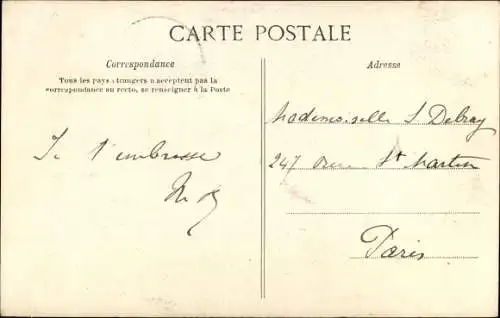 CARTE POSTALE
Correspondance
Tous les pays étrangers n'acceptent pas la
correspondance au recto, se renseigner à la Poste
Je t'embrasse
Adresse
Mademoiselle S Debray
247 Rue St Martin
Paris